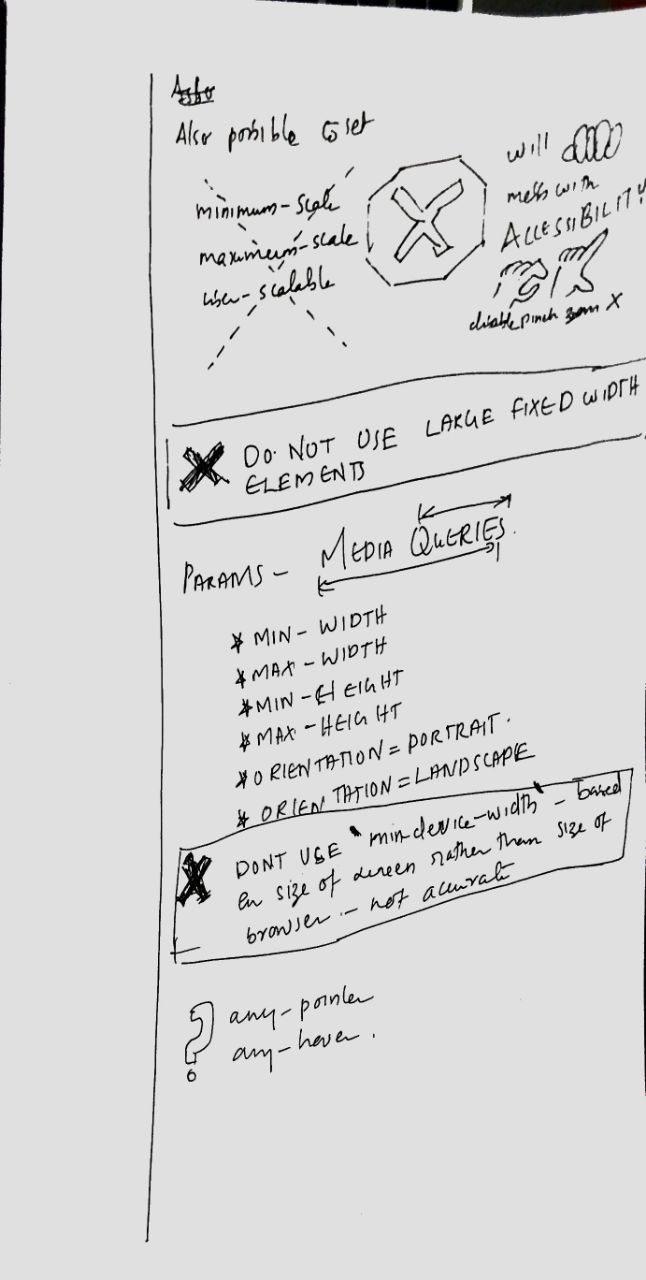 Also possible to set
minimum-scale
maximum-scale
user-scalable
will
mess with
ACCESSIBILITY
disable pinch zoom X
DO NOT USE LARGE FIXED WIDTH
ELEMENTS
PARAMS - MEDIA QUERIES.
* MIN - WIDTH
* MAX - WIDTH
* MIN - HEIGHT
* MAX - HEIGHT
* ORIENTATION = PORTRAIT.
* ORIENTATION = LANDSCAPE
DONT USE `min-device-width` - based
on size of screen rather than size of
browser - not accurate
? any-pointer
any-hover.